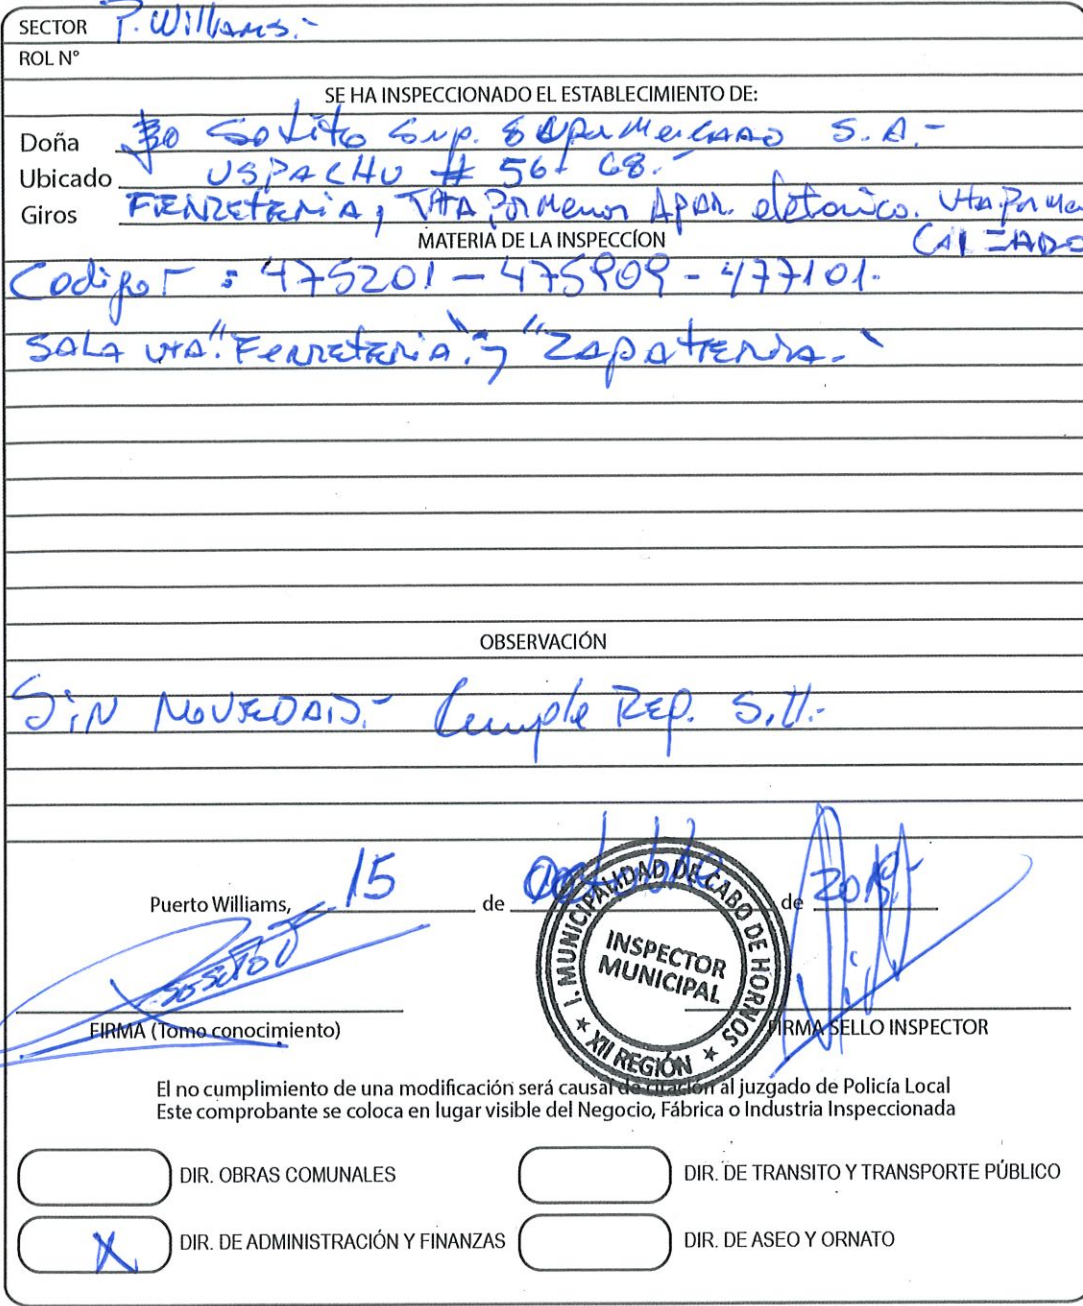 SECTOR P. Williams.-
ROL N°
SE HA INSPECCIONADO EL ESTABLECIMIENTO DE:
Doña Solito Sup. S.A.-
Ubicado USPACHU # 56+ 68.-
Giros FERRETERIA, Por Menor APAR. eletonico. Vta por Men
CALZADO
MATERIA DE LA INSPECCÍON
Codigos : 475201 - 475909 - 477101.
SALA vta. "Ferreteria" y "Zapateria.-"
OBSERVACIÓN
SiN NOVEDAD.- Cumple REP. S.II.-
Puerto Williams, 15 de octubre de 2019.-
FIRMA (Tomo conocimiento)
I. MUNICIPALIDAD DE CABO DE HORNOS
INSPECTOR
MUNICIPAL
XII REGIÓN
FIRMA SELLO INSPECTOR
El no cumplimiento de una modificación será causal de citación al juzgado de Policía Local
Este comprobante se coloca en lugar visible del Negocio, Fábrica o Industria Inspeccionada
DIR. OBRAS COMUNALES
DIR. DE TRANSITO Y TRANSPORTE PÚBLICO
X DIR. DE ADMINISTRACIÓN Y FINANZAS
DIR. DE ASEO Y ORNATO